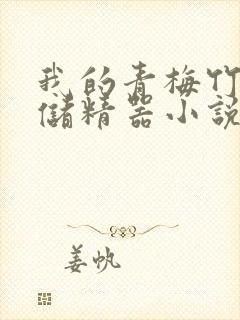 我的青梅竹
儲精器小說
姜帆